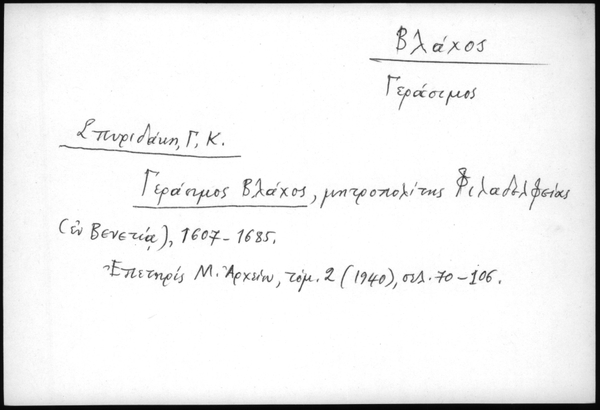 Βλάχος
Γεράσιμος
Σπυριδάκη, Γ. Κ.
Γεράσιμος Βλάχος, μητροπολίτης Φιλαδελφείας
(ἐν Βενετίᾳ), 1607-1685.
Ἐπετηρίς Μ. Ἀρχείου, τόμ. 2 (1940), σελ. 70-106.